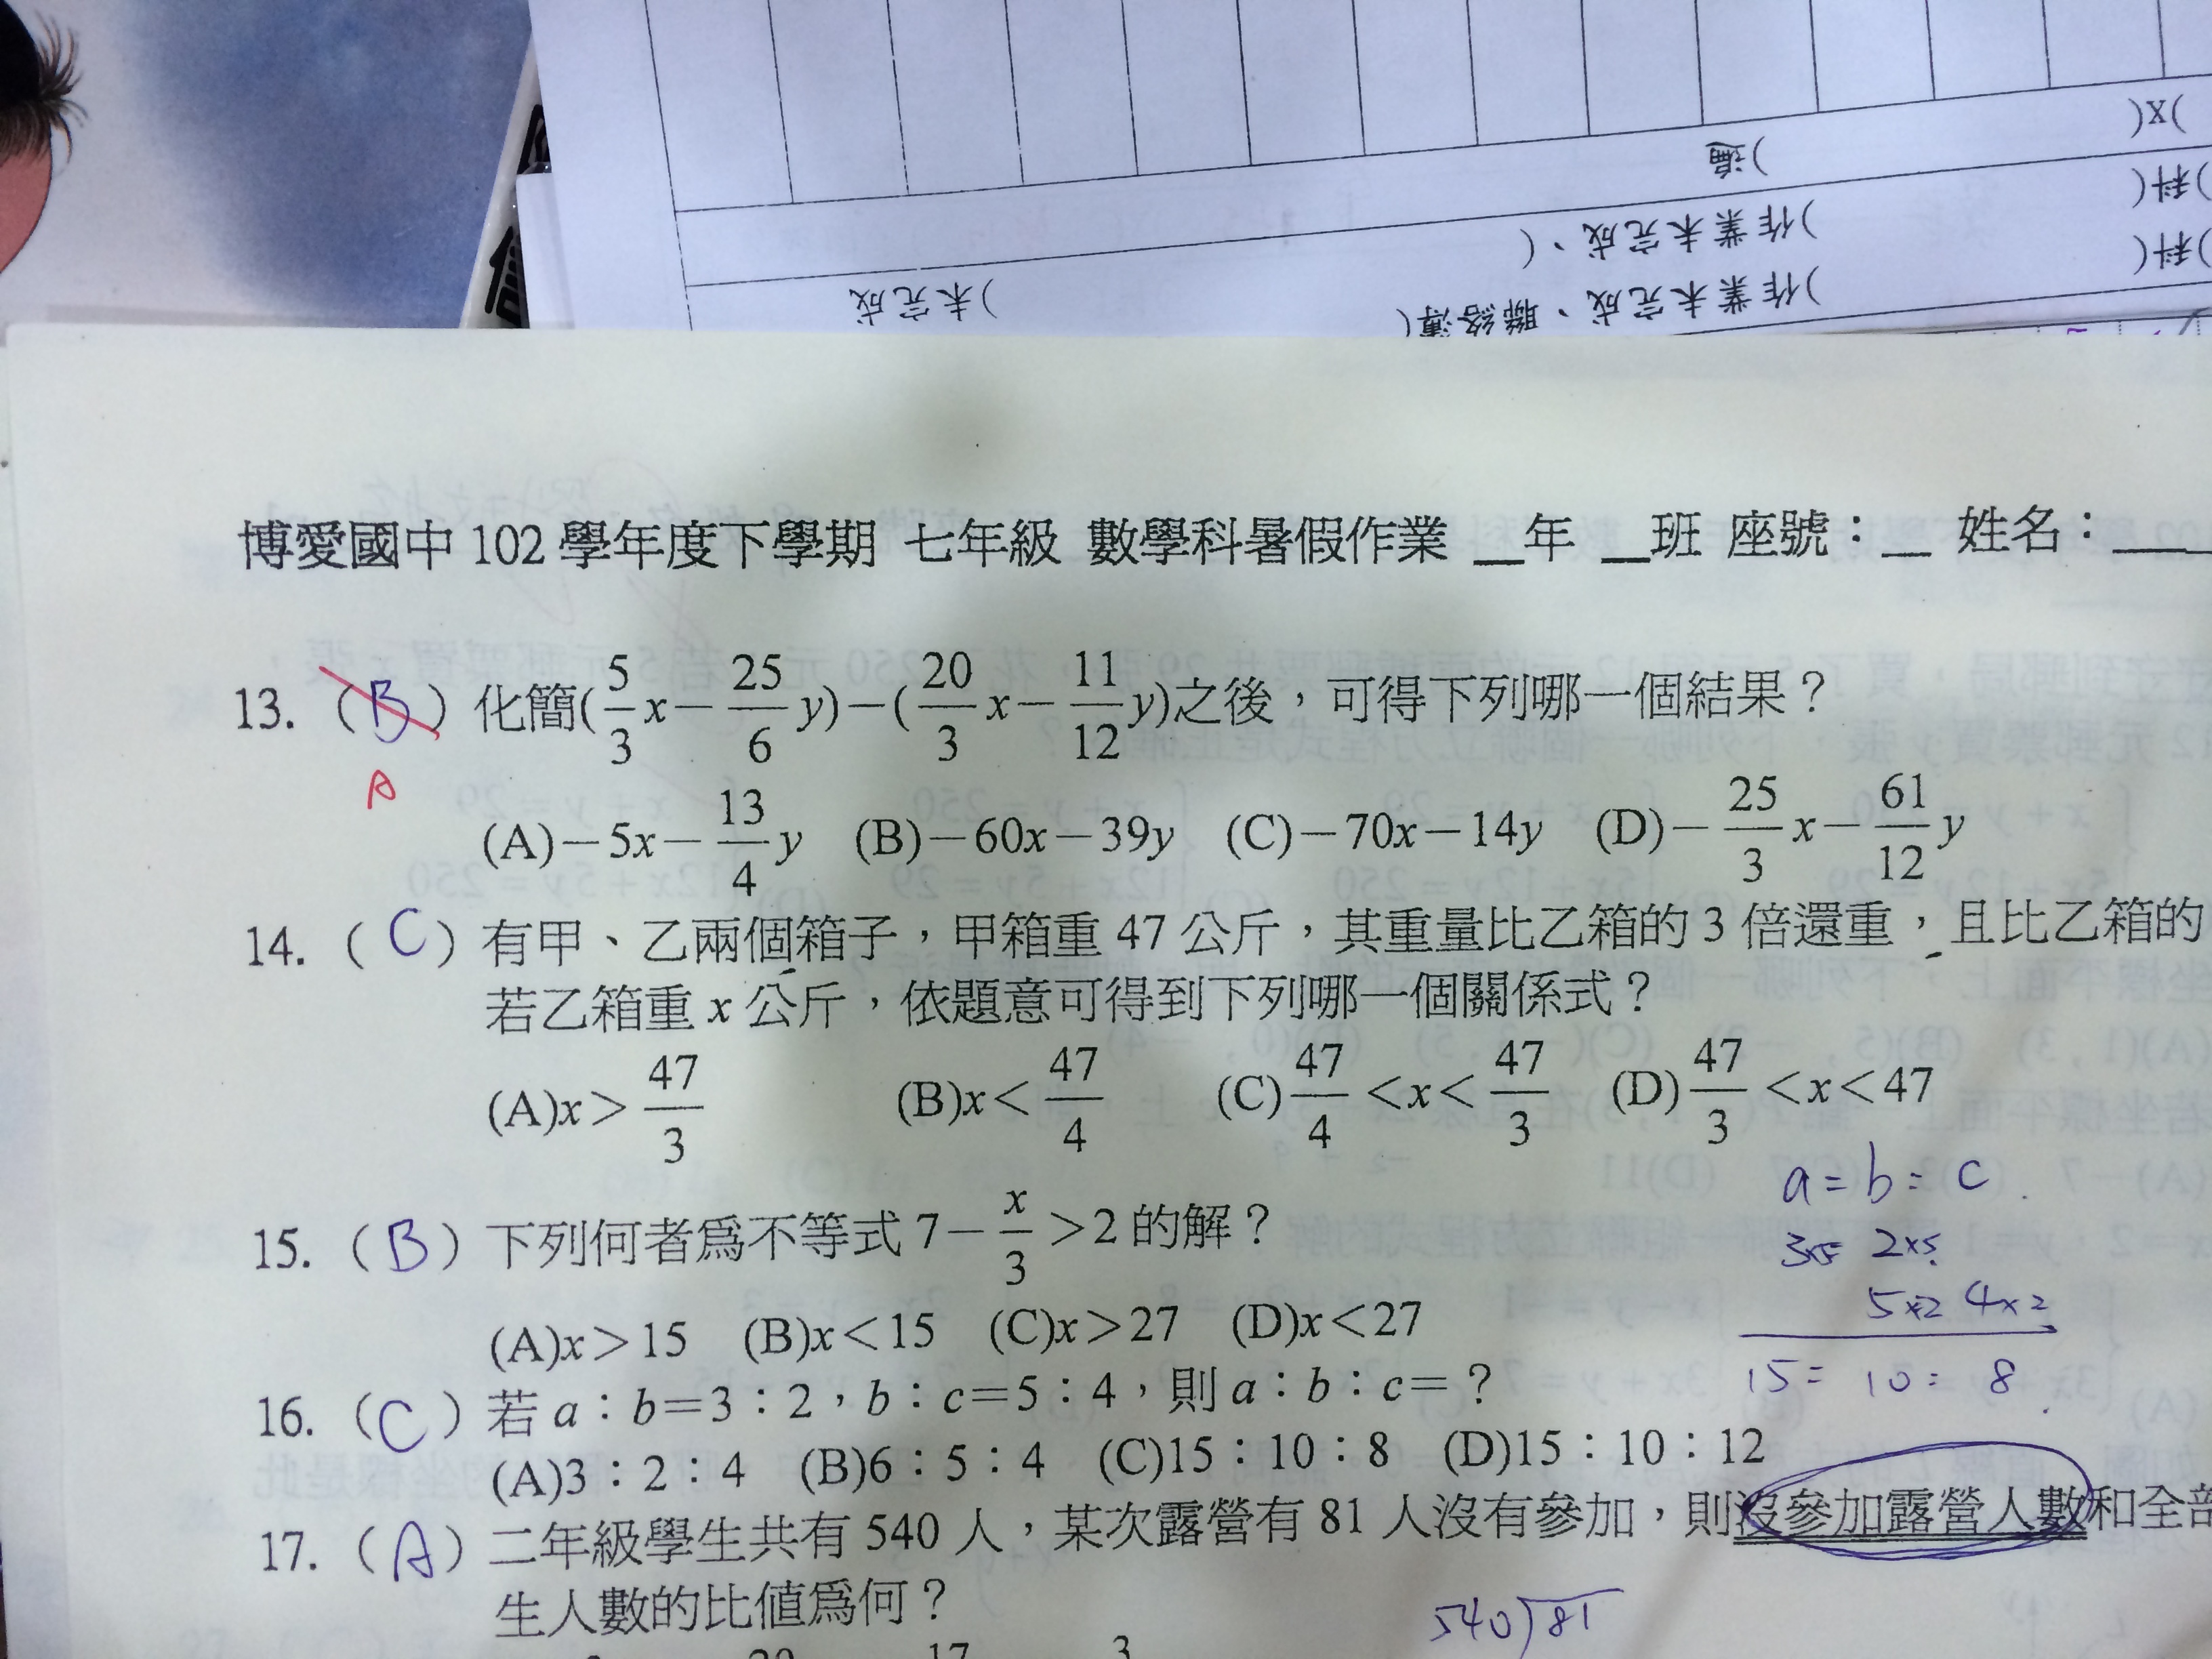 )X(
遍)
)科(
)作業未完成、(
)科(
)作業未完成、聯絡簿(
)未完成
博愛國中 102 學年度下學期 七年級 數學科暑假作業 __年 __班 座號：__ 姓名：___
13. (B) 化簡(5/3x－25/6y)－(20/3x－11/12y)之後，可得下列哪一個結果？
A
(A)－5x－13/4y (B)－60x－39y (C)－70x－14y (D)－25/3x－61/12y
14. (C) 有甲、乙兩個箱子，甲箱重 47 公斤，其重量比乙箱的 3 倍還重，且比乙箱的
若乙箱重 x 公斤，依題意可得到下列哪一個關係式？
(A)x＞47/3 (B)x＜47/4 (C)47/4＜x＜47/3 (D)47/3＜x＜47
15. (B) 下列何者為不等式 7－x/3＞2 的解？
(A)x＞15 (B)x＜15 (C)x＞27 (D)x＜27
a = b = c
3×5= 2×5
5×2 4×2
15 = 10 = 8
16. (C) 若 a：b＝3：2，b：c＝5：4，則 a：b：c＝？
(A)3：2：4 (B)6：5：4 (C)15：10：8 (D)15：10：12
17. (A) 二年級學生共有 540 人，某次露營有 81 人沒有參加，則沒參加露營人數和全部
生人數的比值為何？
540)81
17 3